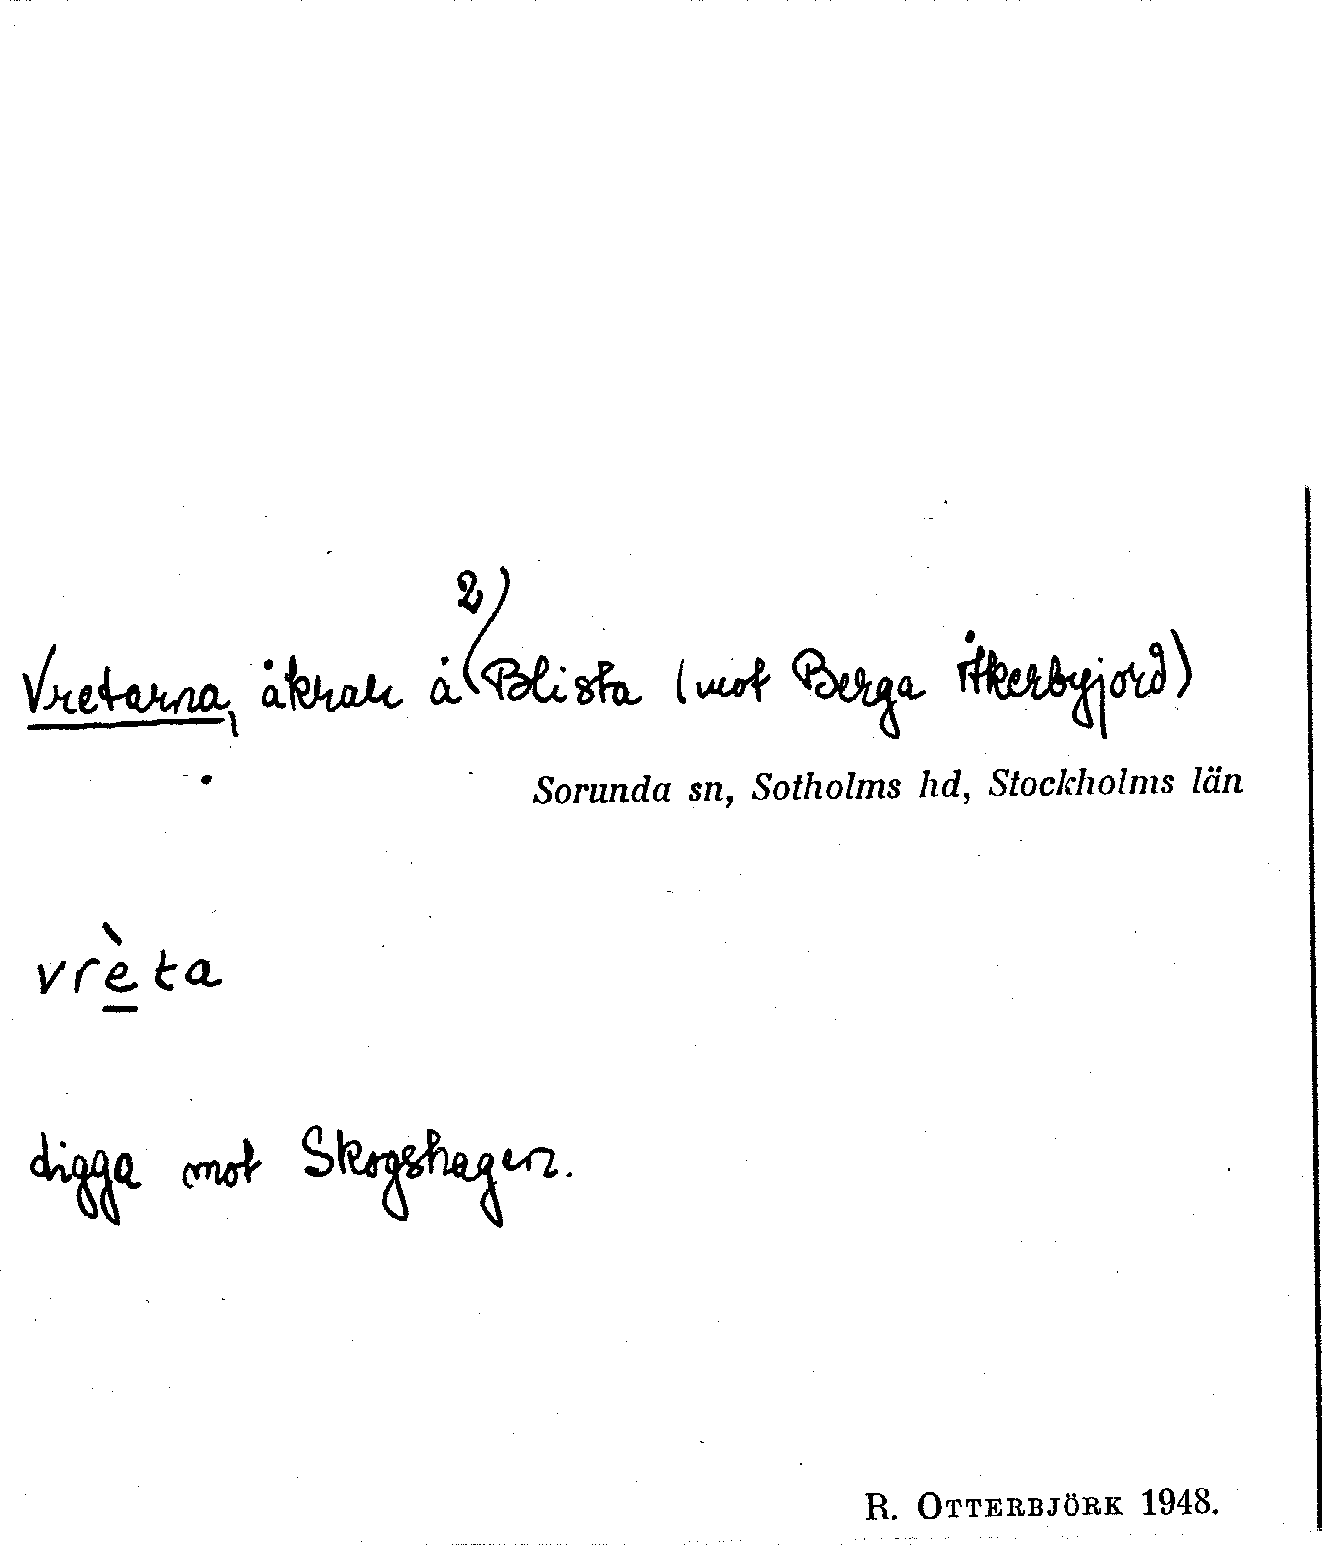 2)
Vretarna, åkrar å Blista (mot Berga Åkerbyjord)
Sorunda sn, Sotholms hd, Stockholms län
vrèta
digga mot Skogshagen.
R. OTTERBJÖRK 1948.